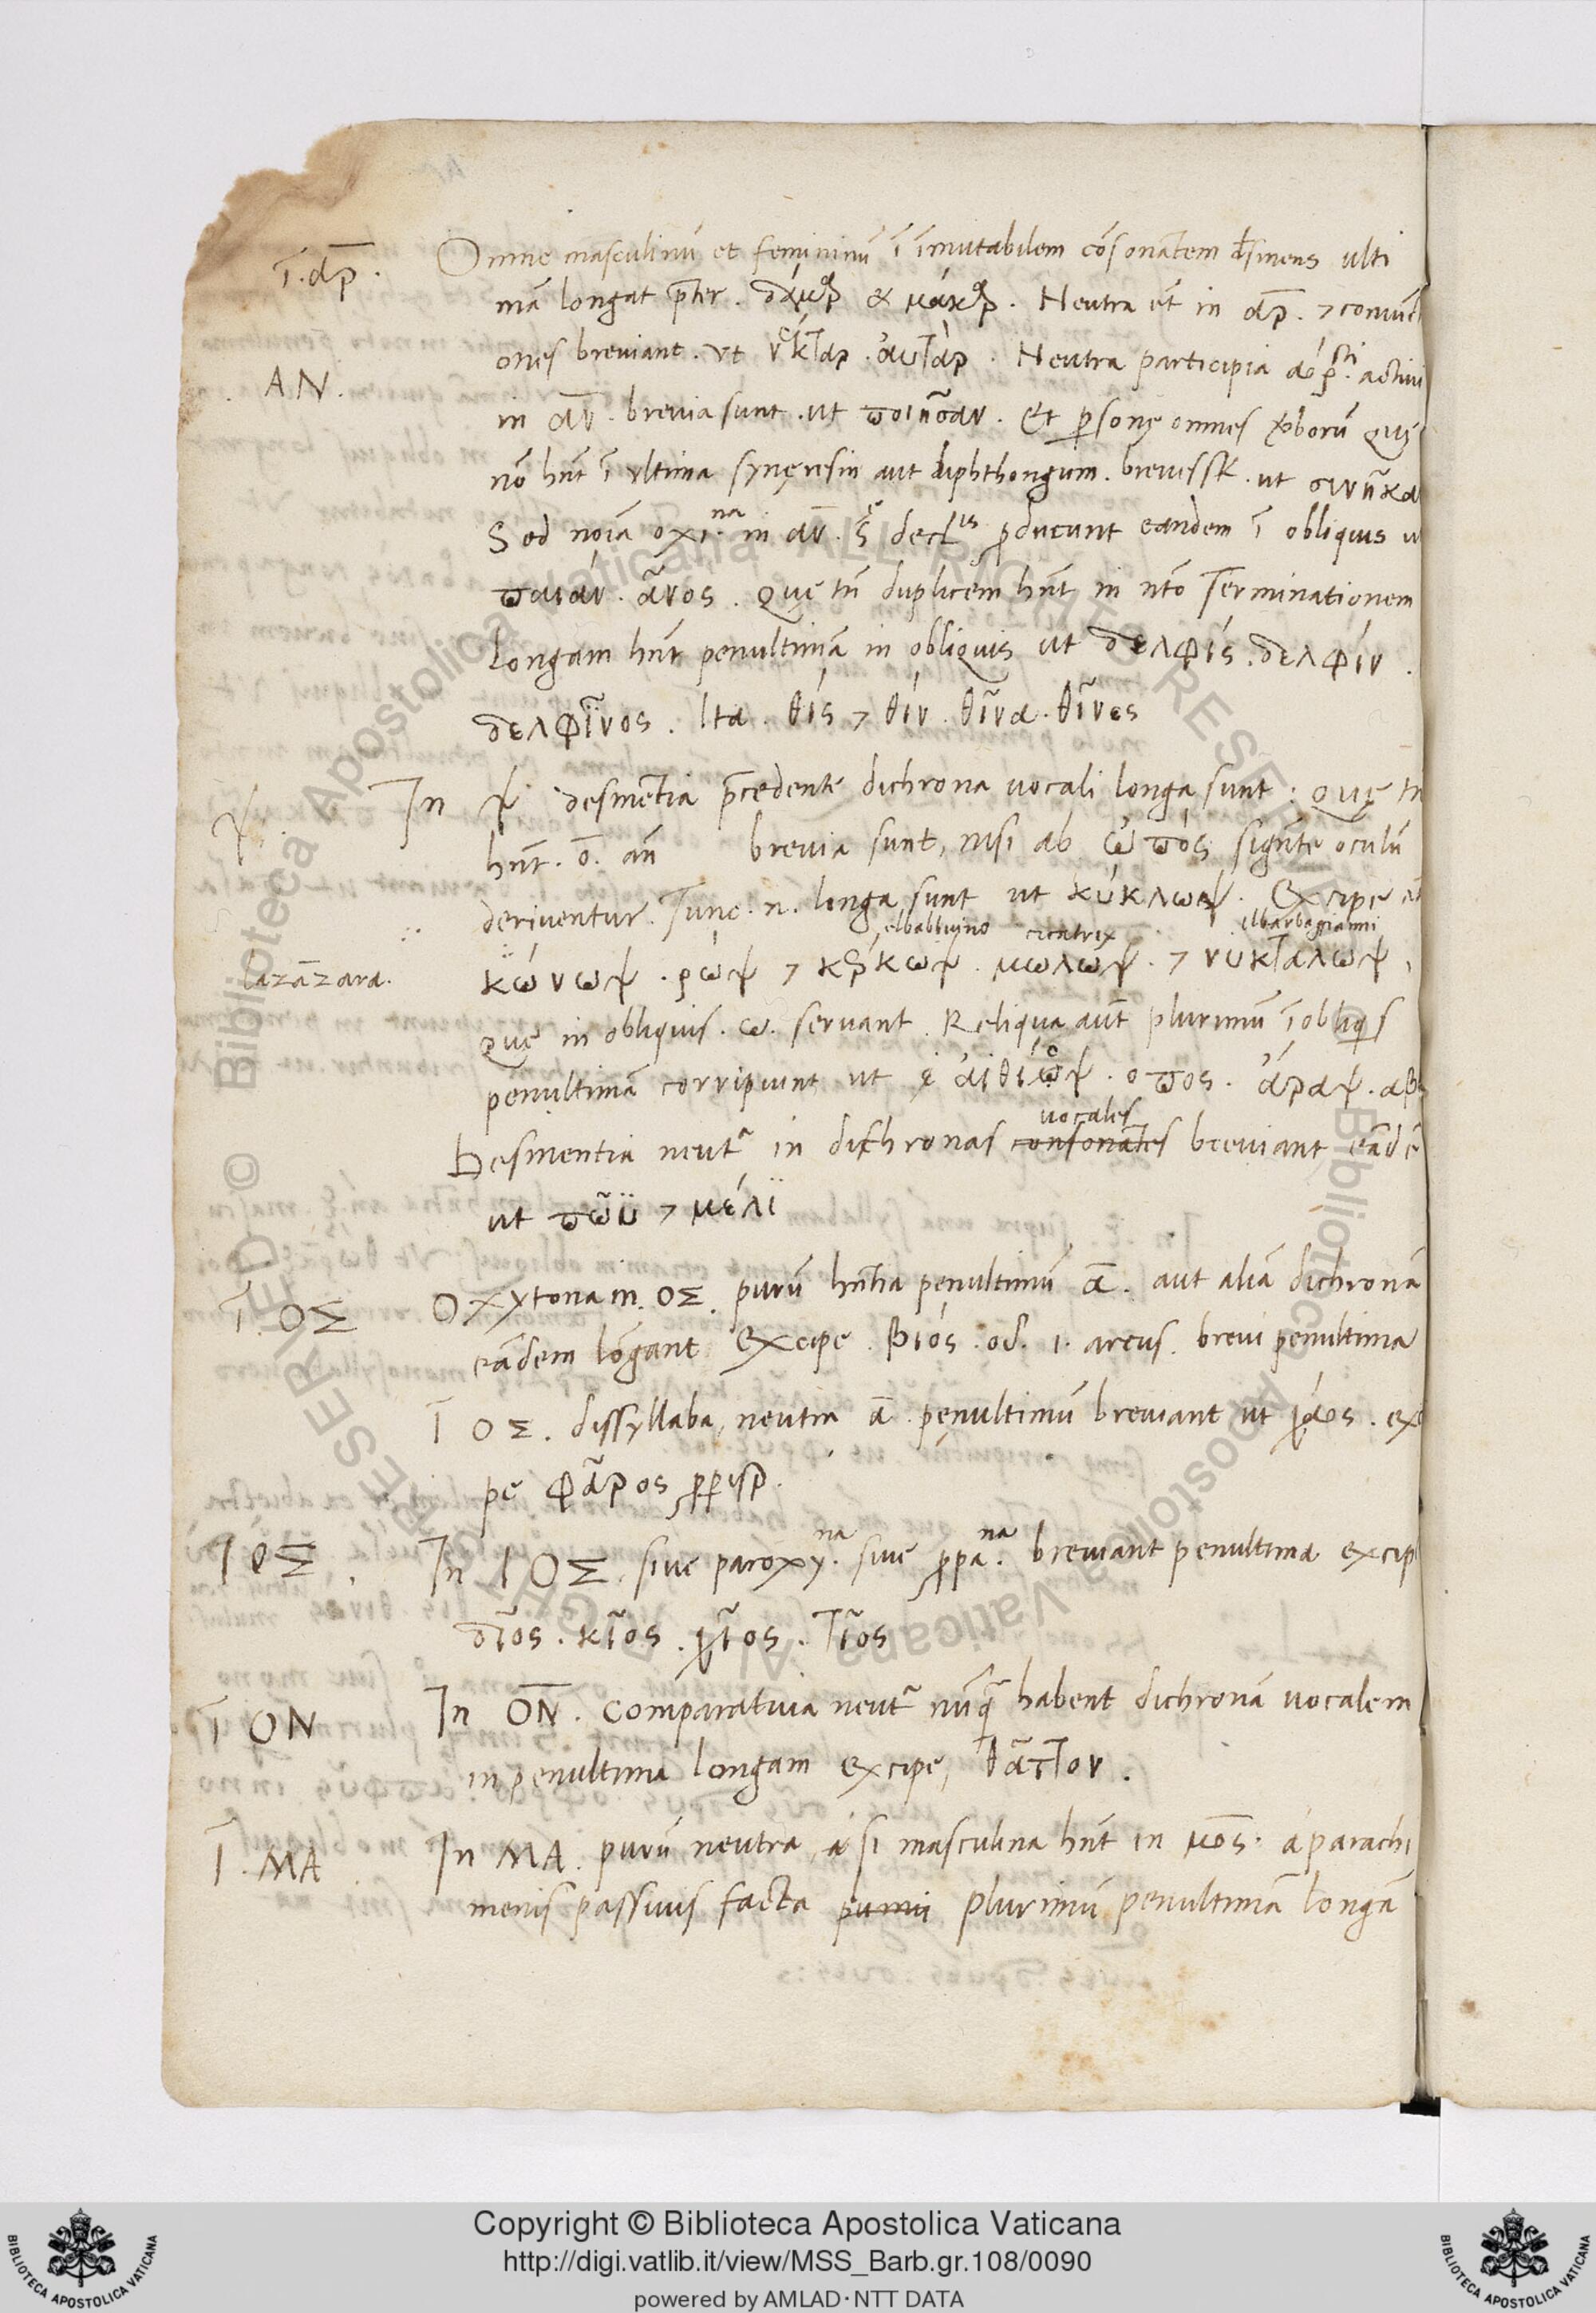 ī. αρ̄.
Omne masculinū et femininū ī īmutabilem cōsonātem desinens ulti
mā longat p̄ter. δάμαρ & μάκαρ. Neutra ēt in αρ̄. 7 coniuncti
ones breviant. ut νέκταρ. ἀυτάρ. Neutra participia aoρ.sti activi
AN.
in αν̄. brevia sunt. ut ποιῆσαν. Et personę omnes verborū quę
nō hn̄t ī ultima synęresin aut diphthongum. breves st̄. ut συνῆκα
Sed noīa oxi.na in αν̄. decl.is producunt eandem ī obliquis
παιάν. ᾶνος. Quę tn̄ duplicem hn̄t in nt̄o terminationem
longam hn̄t penultimā in obliquis ut δελφίς. δελφίν.
δελφῖνος. Ita. θίς 7 θίν. θῖνα. θῖνες
ψ.
In ψ desinentia p̄cedente dichrona vocali longa sunt: quę tn̄
hn̄t. ο̄. an̄ brevia sunt, nisi ab ὠπός signn̄te oculū
deriventur. Tunc. n. longa sunt ut κύκλωψ. Excipe
elbabbuino cicatrix ilbarbagianni
lazāzara.
κώνωψ. ρώψ 7 κέρκωψ. μωλώψ. 7 νυκτάλωψ,
quę in obliquis. ω. servant. Reliqua aūt plurimū ī obliquis
penultimā corripiunt ut ἀιθίοψ. οπος. ἄραψ. αβ
vocales
Desinentia neutra in dichronas consonātes breviant eādē
ut πῶϋ 7 μέλϊ
ī ΟΣ
Oxytona in. ΟΣ. purū hn̄tia penultimū ᾱ. aut aliā dichronā
eādem lōgant Excipe. βιός. arcus. brevi penultima
ī ΟΣ. dissyllaba, neutra ᾱ penultimū breviant ut ψάος. exci
pe φᾶρος
ΙΟΣ.
In ΙΟΣ. sive paroxy.na sive propa.na breviant penultima excip
δῖος. κῖος. χῖος. τῖος
ī ΟΝ
In ΟΝ̄. Comparativa neutra nūquā habent dichronā vocalem
in penultima longam excipe, θᾶττον.
ī. ΜΑ
In ΜΑ. purū neutra, & si masculina hn̄t in μος̄. á parachi
menis passivis facta pumii plurimū penultimā longā
Copyright © Biblioteca Apostolica Vaticana
http://digi.vatlib.it/view/MSS_Barb.gr.108/0090
powered by AMLAD·NTT DATA